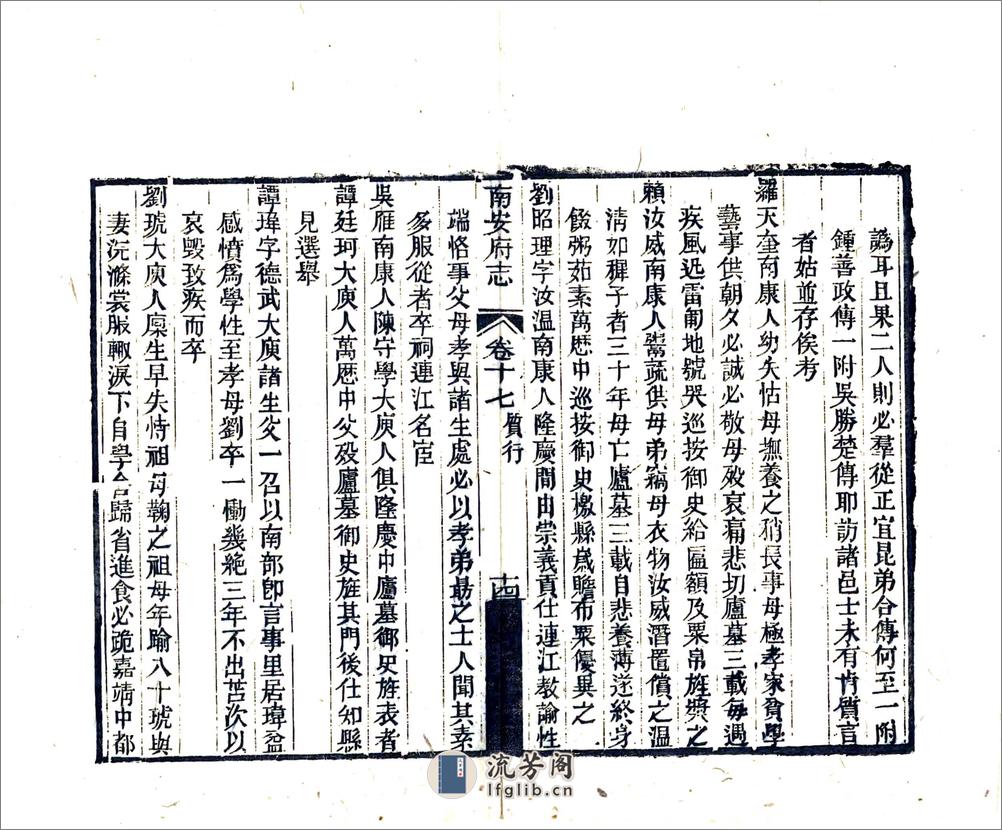 譌耳且果二人則必羣從正宜昆弟合傳何至一附
鍾善政傳一附吳勝楚傳耶訪諸邑士未有肯質言
者姑並存俟考
羅天奎南康人幼失怙母撫養之稍長事母極孝家貧學
藝事供朝夕必誠必敬母歿哀痛悲切廬墓三載每遇
疾風迅雷匍地號哭巡按御史給匾額及粟帛旌獎之
賴汝威南康人鬻蔬供母弟竊母衣物汝威潛置償之溫
淸如穉子者三十年母亡廬墓三載自悲養薄遂終身
餟粥茹素萬歷中巡按御史檄縣爲贍布粟優異之
劉昭理字汝溫南康人隆慶間由崇義貢仕連江教諭性
南安府志 卷十七 質行 十四
端恪事父母孝與諸生處必以孝弟最之士人聞其素
多服從者卒祠連江名宦
吳雁南康人陳守學大庾人俱隆慶中廬墓御史旌表者
譚廷珂大庾人萬歷中父歿廬墓御史旌其門後仕知縣
見選舉
譚瑋字德武大庾諸生父一召以南部郎言事里居瑋益
感憤爲學性至孝母劉卒一慟幾絶三年不出苫次以
哀毀致疾而卒
劉琥大庾人廩生早失恃祖母鞠之祖母年踰八十琥與
妻浣滌裳服輙淚下自學舍歸省進食必跪嘉靖中都
流芳阁
lfglib.cn